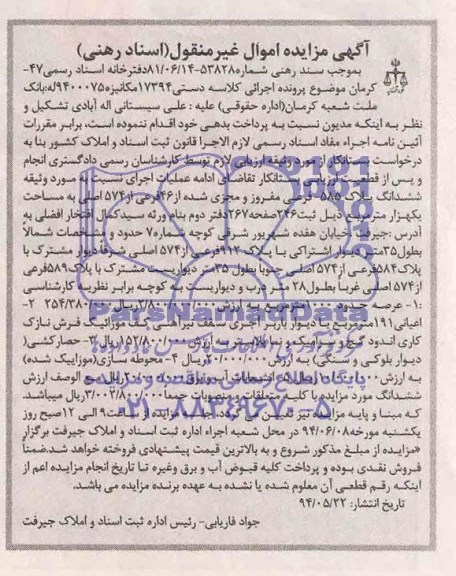 آگهی مزایده اموال غیرمنقول(اسناد رهنی)
بموجب سند رهنی شماره۵۳۸۲۸-۸۱/۰۶/۱۴دفترخانه اسناد رسمی۴۷-
کرمان موضوع پرونده اجرائی کلاسه دستی۱۷۳۹۴مکانیزه۹۴۰۰۰۷۵له:بانک
ملت شعبه کرمان(اداره حقوقی) علیه : علی سیستانی اله آبادی تشکیل و
نظر به اینکه مدیون نسبت به پرداخت بدهی خود اقدام ننموده است، برابر مقررات
آئین نامه اجراء مفاد اسناد رسمی لازم الاجرا قانون ثبت اسناد و املاک کشور بنا به
درخواست بستانکار از مورد وثیقه ارزیابی لازم توسط کارشناسان رسمی دادگستری انجام
و پس از قطعیت ارزیابی بستانکار تقاضای ادامه عملیات اجرای نسبت به مورد وثیقه
ششدانگ پلاک ۵۸۵ فرعی مفروز و مجزی شده از۴۶فرعی از۵۷۴ اصلی به مساحت
یکهزار مترمربع ذیل ثبت۲۴۶صفحه۲۶۷دفتر دوم بنام ورثه سیدکمال افتخار افضلی به
آدرس :جیرفت خیابان هفده شهریور شرقی کوچه شماره۷ حدود و مشخصات شمالاً
بطول۳۵متر دیوار اشتراکی با پلاک۹۱۲فرعی از۵۷۴ اصلی شرقاً دیوار مشترک با
پلاک۵۸۴فرعی از۵۷۴ اصلی جنوباً بطول ۳۵متر دیواریست مشترک با پلاک۵۸۹فرعی
از۵۷۴ اصلی غرباً بطول۲۸ متر درب و دیواریست به کوچه برابر نظریه کارشناسی
:۱- عرصه حدود ۱۰۰۰مترمربع به ارزش ۲/۸۰۰/۰۰۰/۰۰۰ریال ۲-
اعیانی۱۹۱مترمربع با دیوار باربر آجری سقف تیرآهنی کف موزائیک فرش نازک
کاری اندود گچ و سرامیک و نما پلاستر به ارزش ریال ۳- حصارکشی(
دیوار بلوکی و سنگی) به ارزش ریال ۴- محوطه سازی(موزاییک شده)
به ارزش ریال ۵- انشعابات آب و برق ریال مع الوصف ارزش
ششدانگ مورد مزایده با کلیه متعلقات و منصوبات جمعا ریال میباشد.
که مبنا و پایه مزایده نیز تعیین می گردد. جلسه مزایده از ساعت۹ الی ۱۲صبح روز
یکشنبه مورخه۹۴/۰۶/۰۸ در محل شعبه اجراء اداره ثبت اسناد و املاک جیرفت برگزار
«مزایده از مبلغ مذکور شروع و به بالاترین قیمت پیشنهادی فروخته خواهد شد.ضمناً
فروش نقدی بوده و پرداخت کلیه قبوض آب و برق وغیره تا تاریخ انجام مزایده اعم از
اینکه رقم قطعی آن معلوم شده یا نشده به عهده برنده مزایده می باشد.
تاریخ انتشار: ۹۴/۰۵/۲۲
جواد فاریابی- رئیس اداره ثبت اسناد و املاک جیرفت
ParsNamadData
پایگاه اطلاع رسانی مناقصه و مزایده
۰۲۱-۸۸۳۴۹۶۷۰-۵